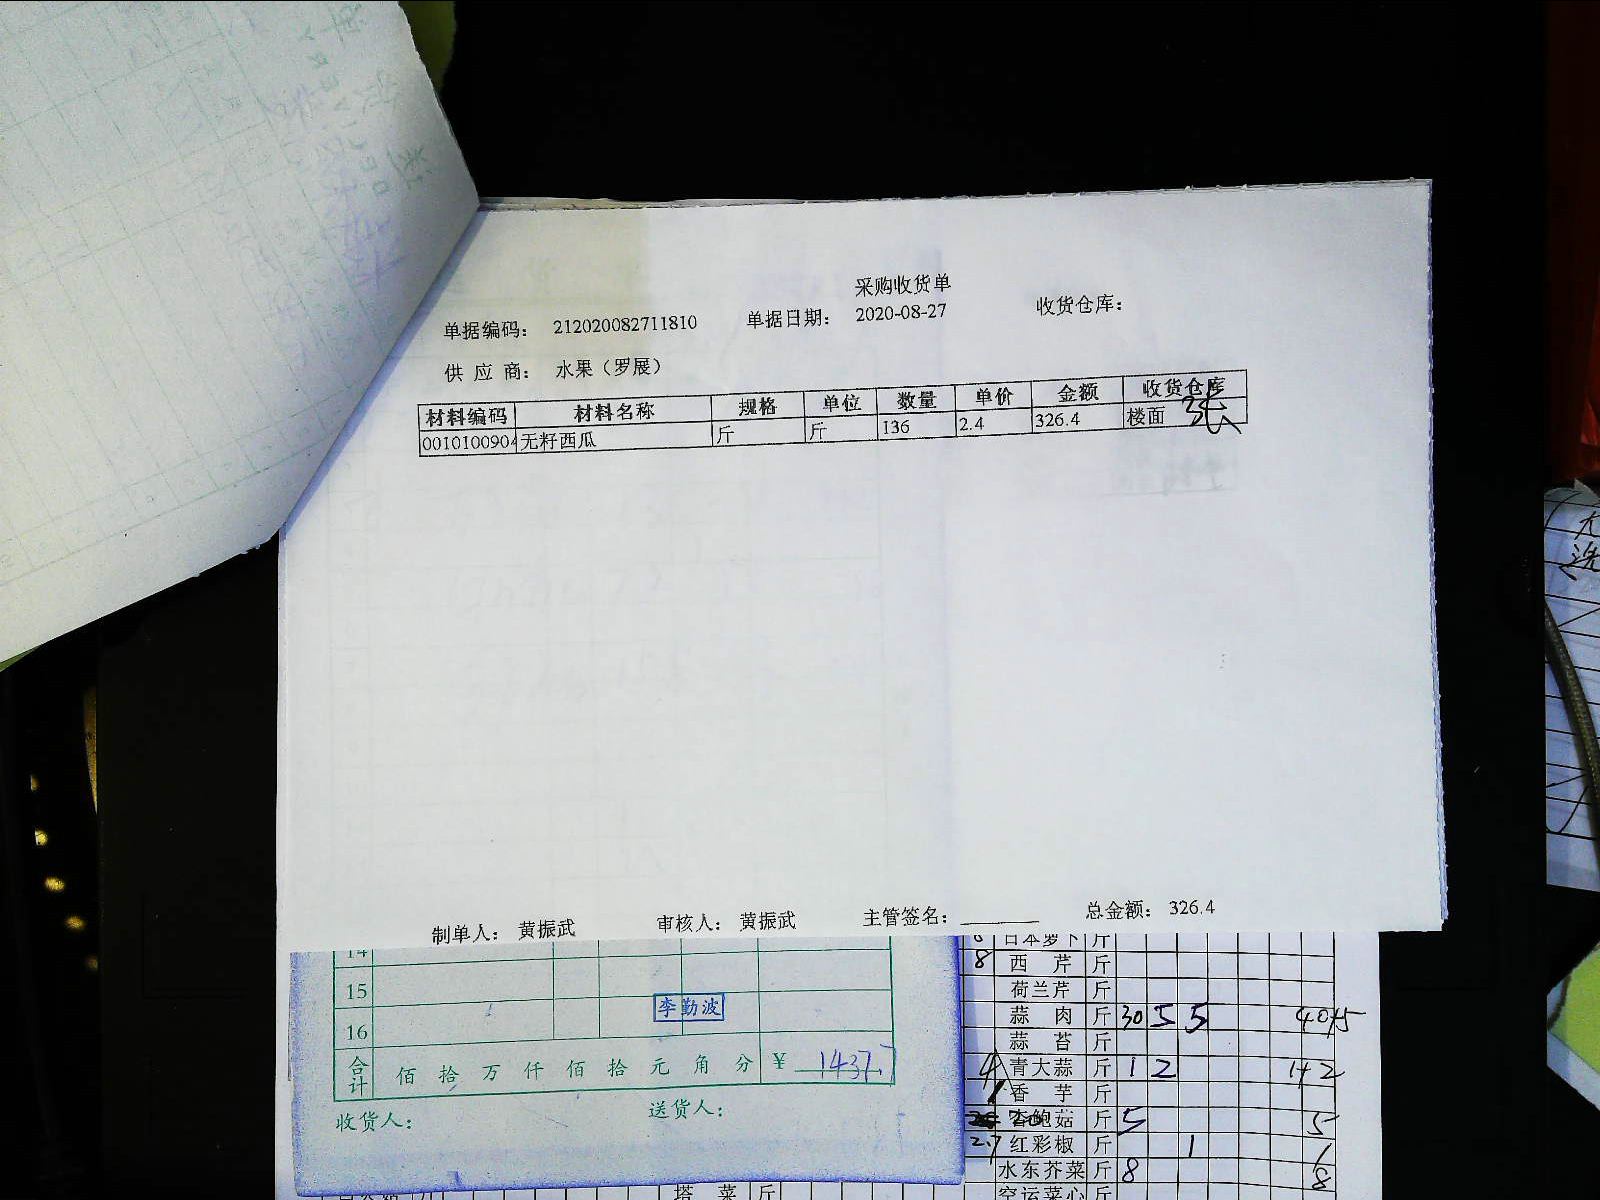 采购收货单
单据编码： 212020082711810 单据日期： 2020-08-27 收货仓库：
供 应 商： 水果（罗展）
材料编码 材料名称 规格 单位 数量 单价 金额 收货仓库
0010100904 无籽西瓜 斤 斤 136 2.4 326.4 楼面
制单人： 黄振武 审核人： 黄振武 主管签名： 总金额： 326.4
14
15
李勤波
16
合计 佰 拾 万 仟 佰 拾 元 角 分 ¥ 1437.7
收货人： 送货人：
日本萝卜 斤
8 西 芹 斤
荷兰芹 斤
蒜 肉 斤 30 5 5
蒜 苔 斤
青大蒜 斤 1 2
香 芋 斤
鲍菇 斤 5 5
2.7 红彩椒 斤 1 1
水东芥菜 斤 8 8
空运菜心 斤
塔 菜 斤